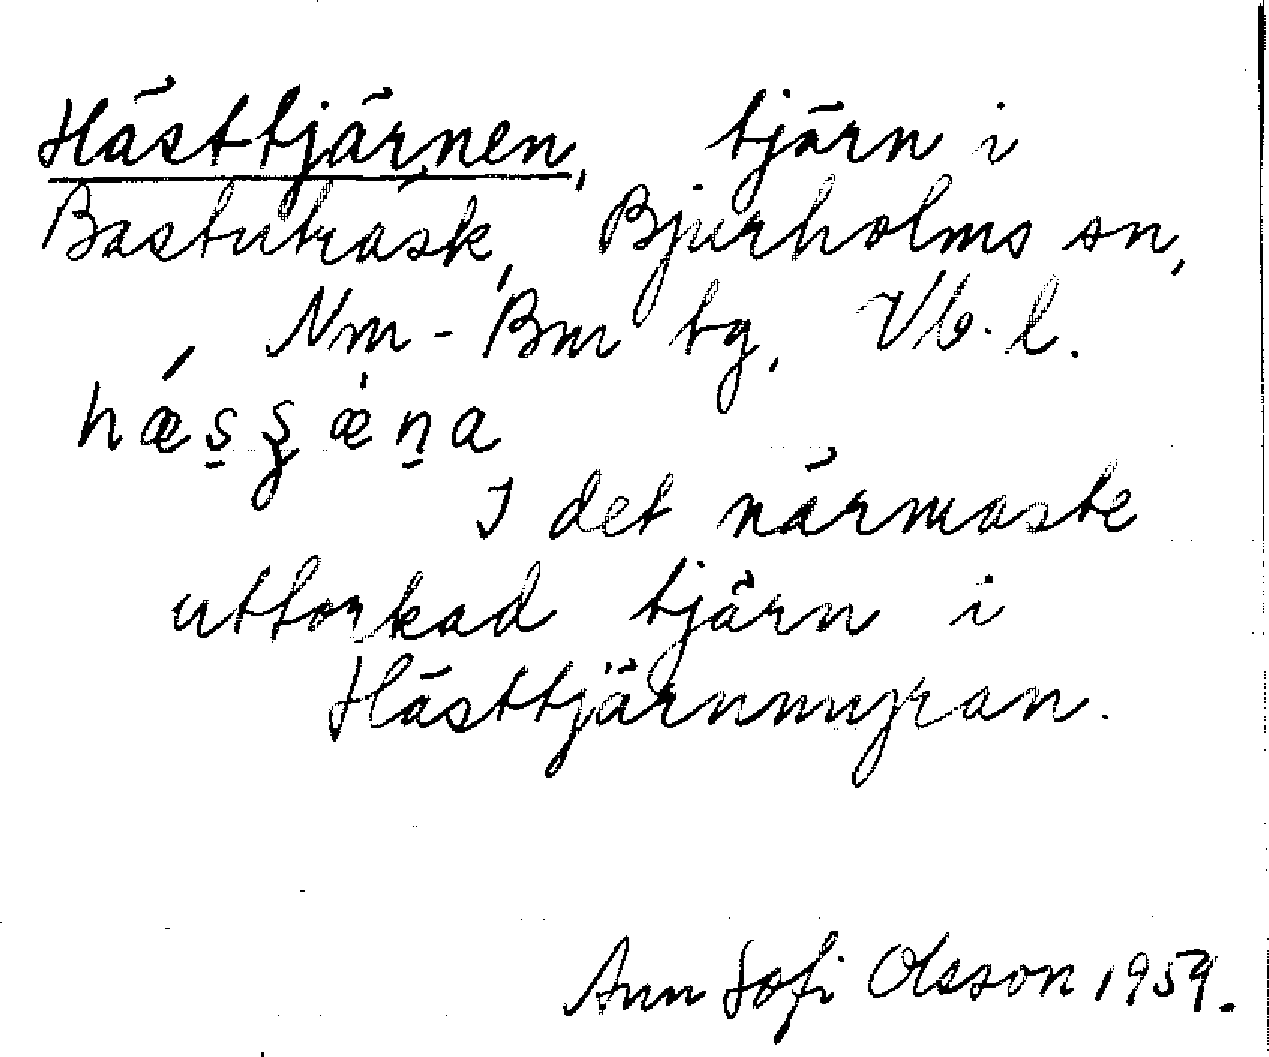 Hästtjärnen, tjärn i
Bastuträsk, Bjurholms sn,
Nm - Bm tg, Vb. l.
I det närmaste
uttorkad tjärn i
Hästtjärnmyran.
Ann Sofi Olsson 1959.